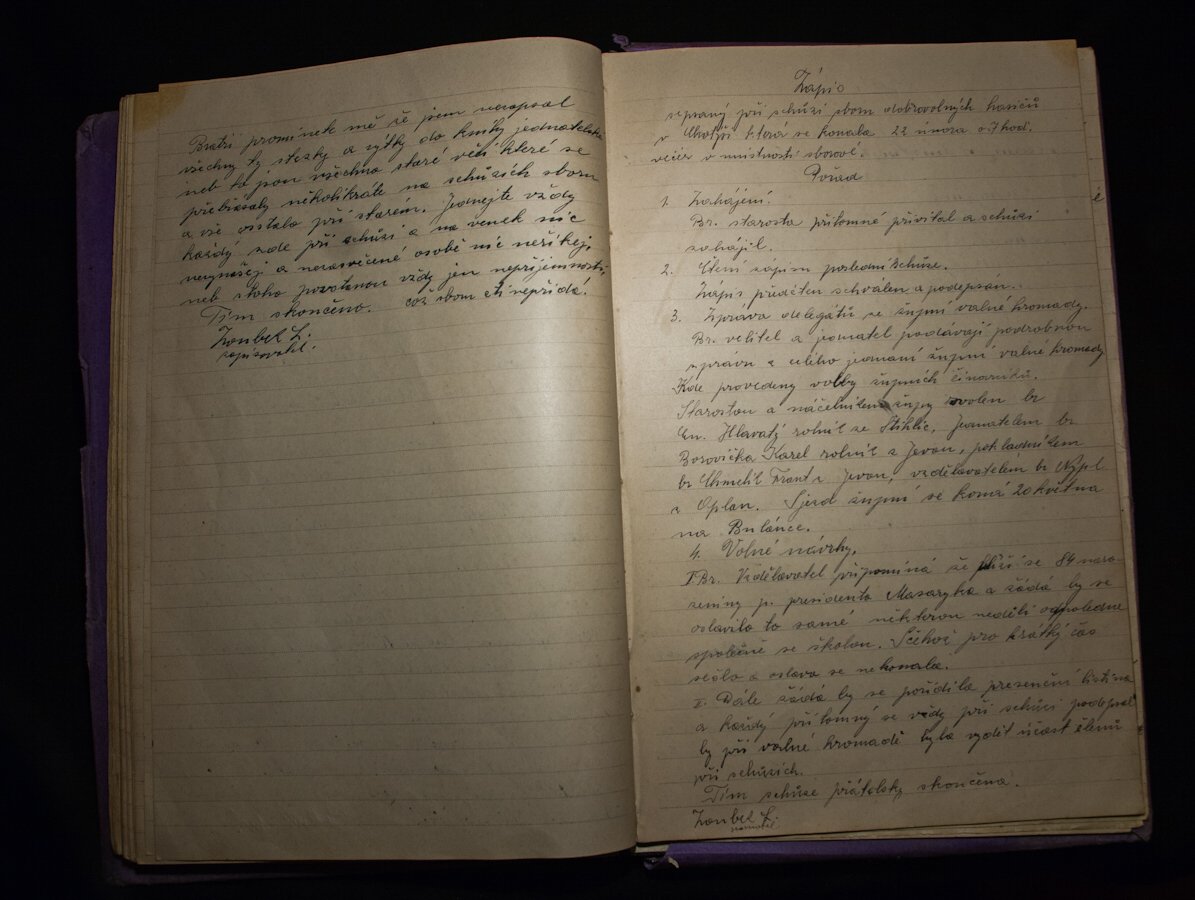 Bratři prominte mě že jsem nezapsal
všechny ty stesky a výtky do knihy jednatelské
neb to jsou všechno staré věci které se
přebíraly několikráte na schůzích sboru
a vše ostalo při starém. Jednejte vždy
každý zde při schůzi a na venek nic
nevynášej a nezasvěcené osobě nic neříkej,
neb stoho povstanou vždy jen nepříjemnosti,
Tím skončeno. což sboru cti nepřidá.
Zoubek L.
zapisovatel.
Zápis
sepsaný při schůzi sboru dobrovolných hasičů
v která se konala 22 února o 7 hod.
večer v místnosti sborové.
Pořad
1. Zahájení.
Br. starosta přítomné přivítal a schůzi
zahájil.
2. Čtení zápisu poslední schůze.
Zápis předčten schválen a podepsán.
3. Zpráva delegátů ze župní valné hromady.
Br. velitel a jednatel podávají podrobnou
zprávu z celého jednaní župní valné hromady
Kde provedeny volby župních činovníků.
Starostou a náčelníkem župy zvolen br
En. Hlavatý rolník ze Štíhlic, Jednatelem br
Borovička Karel rolník z Jevan, pokladníkem
br Chmelík Frant z Jevan, vzdělavatelem br Nýpl
z Oplan. Sjezd župní se koná 20 května
na Bulánce.
4. Volné návrhy.
I Br. Vzdělavatel připomíná že blíží se 84 naro-
zeniny p. presidenta Masaryka a žádá by se
oslavilo to samé některou neděli odpoledne
společně se školou. Sčehož pro krátký čas
sešlo a oslava se nekonala.
II. Dále žádá by se pořídila presenční listina
a každý přítomný se vždy při schůzi podepsal
by při valné hromadě byla vydět účast členů
při schůzích.
Tím schůze přátelsky skončena.
Zoubek L.